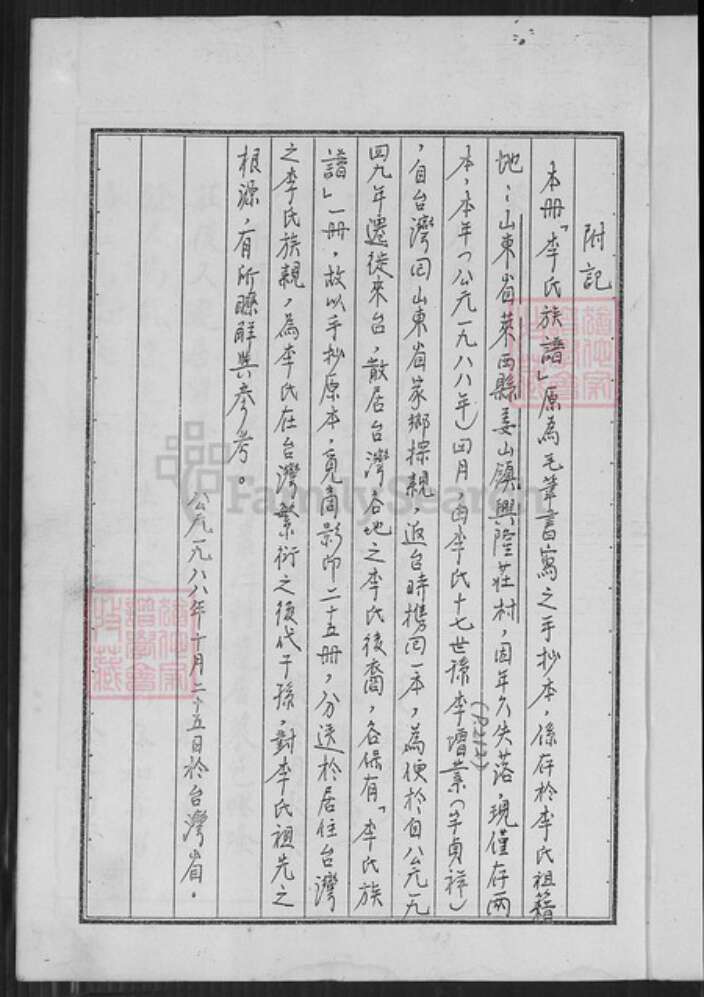 附記
本册「李氏族譜」原為毛筆書寫之手抄本，係存於李氏祖籍
地：山東省萊西縣姜山鎮興隆莊村，因年久失落，現僅存兩
本，本年（公元一九八八年）四月由李氏十七世孫李增業（字貞祥）
(P.212)
，自台灣回山東省家鄉探親，返台時携回一本，為便於自公元一九
四九年遷徙來台，散居台灣各地之李氏後裔，各保有「李氏族
譜」一册，故以手抄原本，覓商影印二十五册，分送於居住台灣
之李氏族親，為李氏在台灣繁衍之後代子孫，對李氏祖先之
根源，有所瞭解與參考。
公元一九八八年十月二十五日於台灣省。
FamilySearch